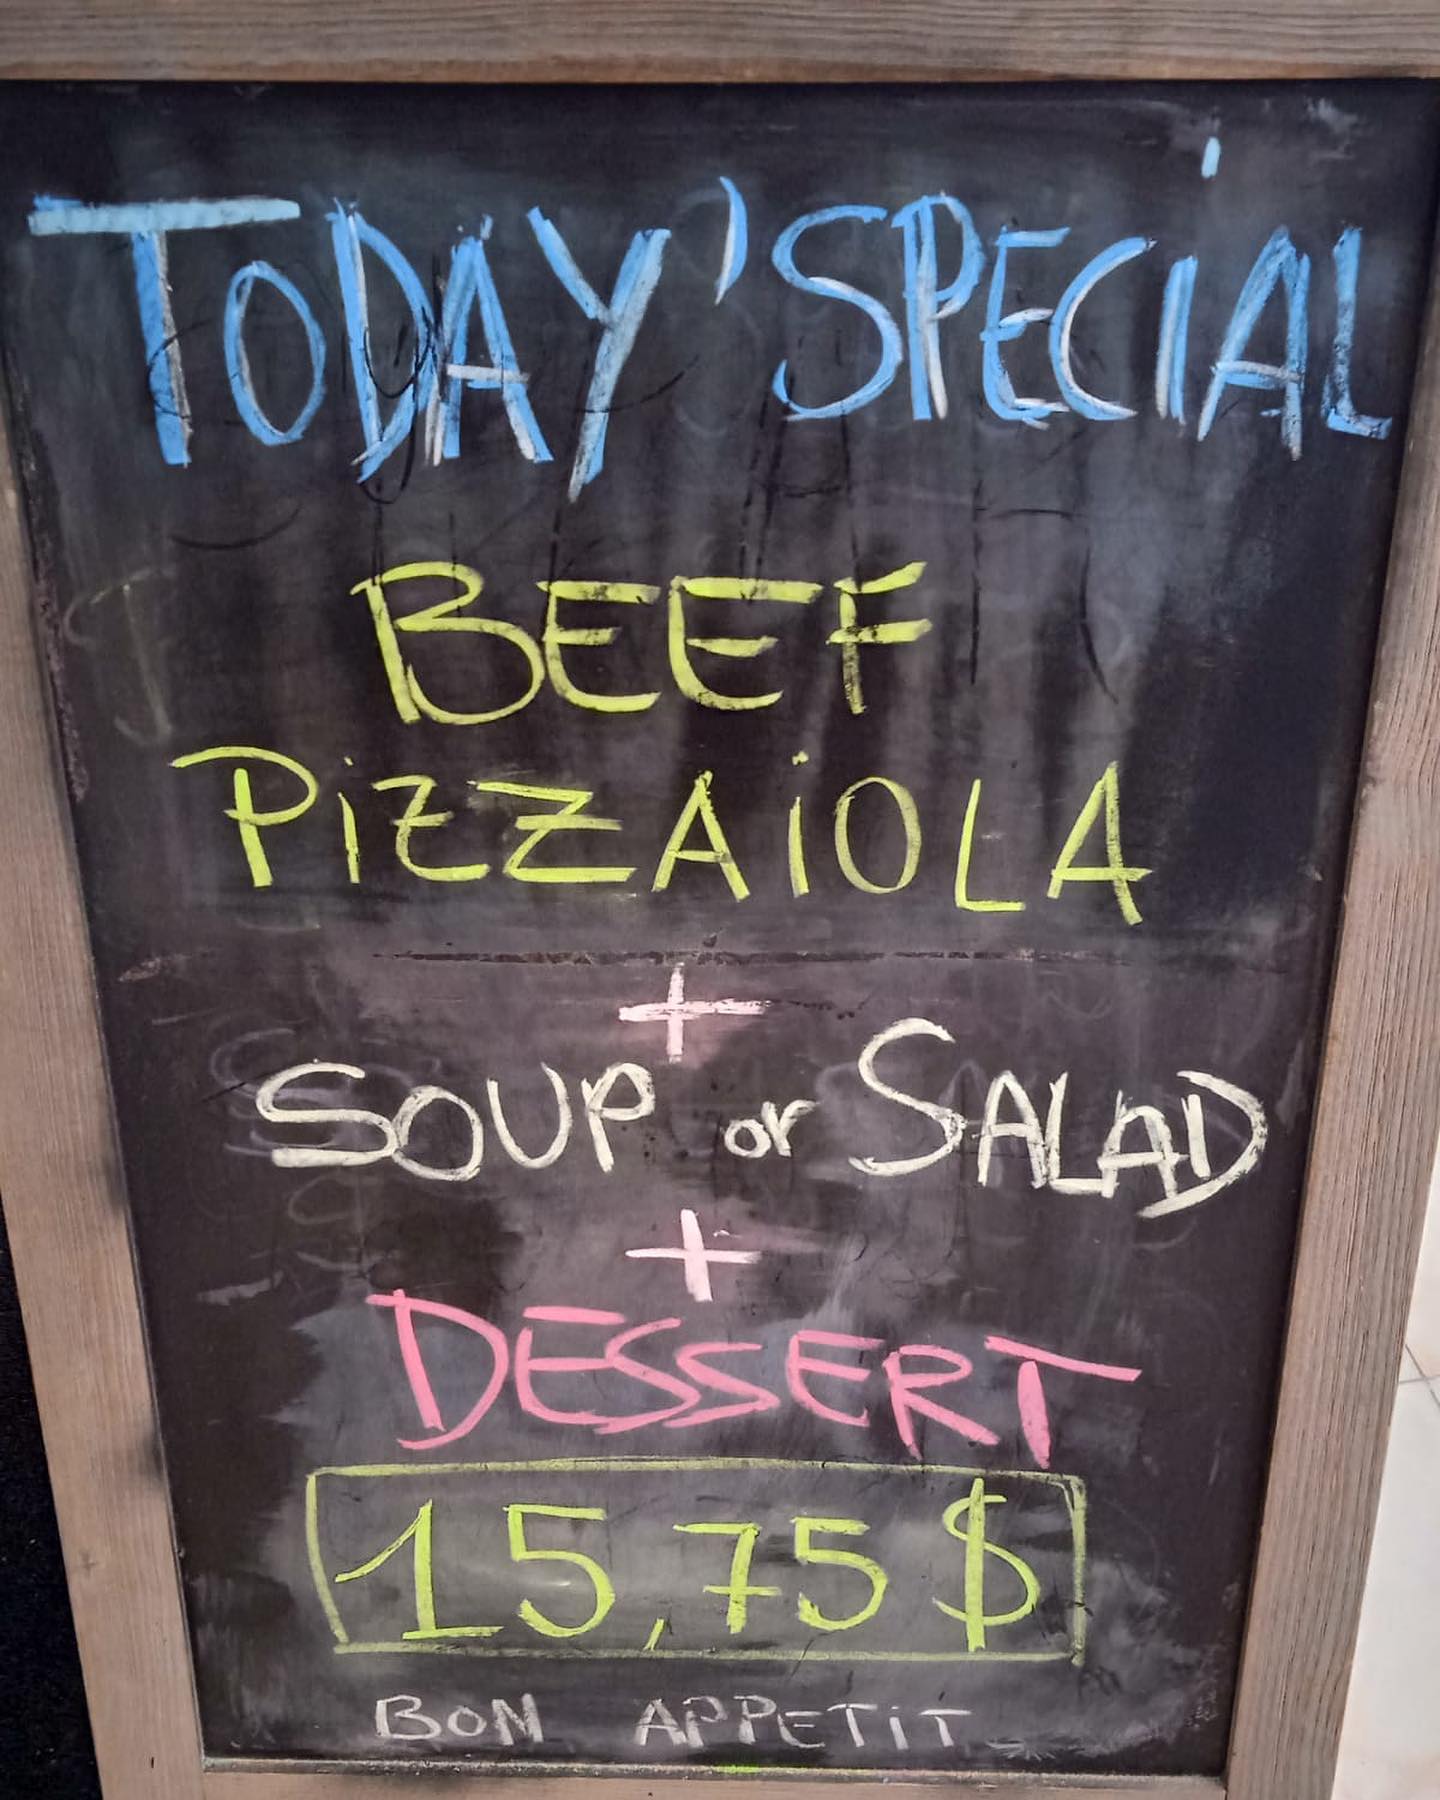 TODAY'SPECIAL
BEEF
PiZZAiOLA
+
SOUP or SALAD
+
DESSERT
15,75 $
BON APPETiT